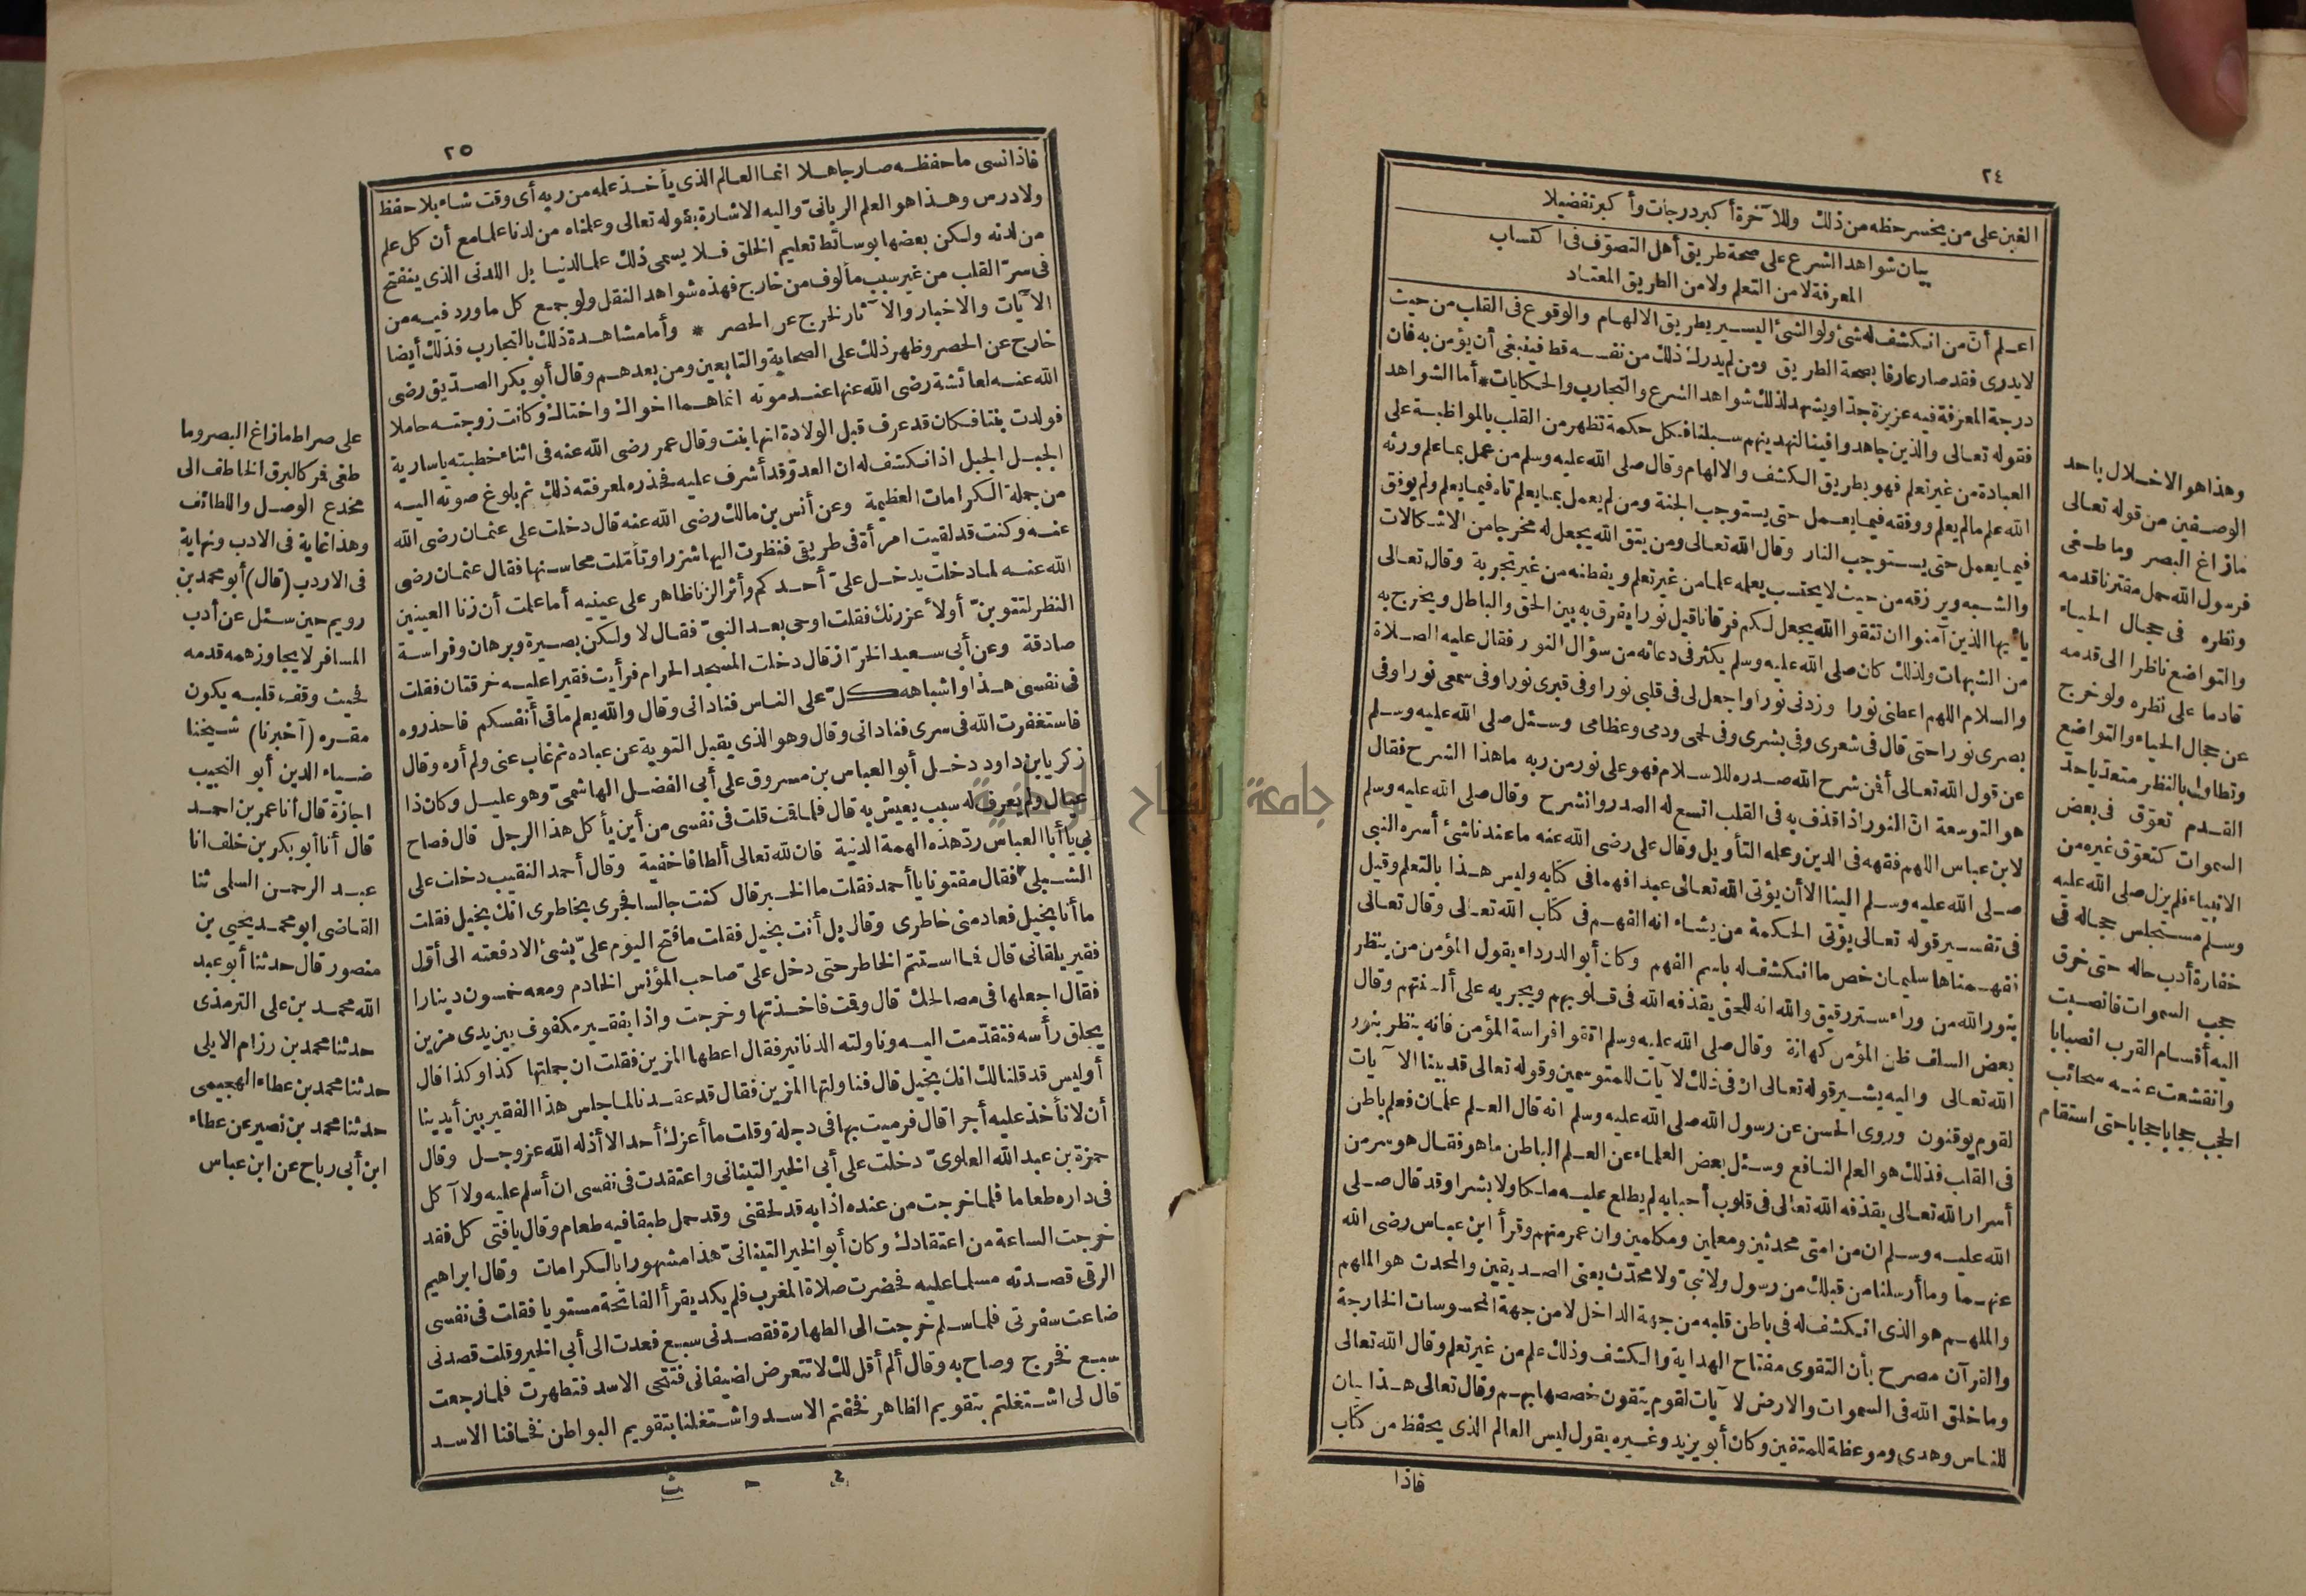 ٢٤
الغبن على من يخسر حظه من ذلك وللآخرة أكبر درجات وأكبر تفضيلا
بيان شواهد الشرع على صحة طريق أهل التصوّف فى اكتساب
المعرفة لا من التعلم ولا من الطريق المعتاد
اعلم أنّ من انكشف له شئ ولو الشئ اليسير بطريق الالهام والوقوع فى القلب من حيث
لا يدرى فقد صار عارفا بصحة الطريق ومن لم يدرك ذلك من نفسه قط فينبغى أن يؤمن به فان
درجة المعرفة فيه عزيزة جدّا ويشهد لذلك شواهد الشرع والتجارب والحكايات * أما الشواهد
فقوله تعالى والذين جاهدوا فينا لنهدينهم سبلنا فكل حكمة تظهر من القلب بالمواظبة على
العبادة من غير تعلم فهو بطريق الكشف والالهام وقال صلى الله عليه وسلم من عمل بما علم ورثه
الله علم ما لم يعلم ووفقه فيما يعمل حتى يستوجب الجنة ومن لم يعمل بما يعلم تاه فيما يعلم ولم يوفق
فيما يعمل حتى يستوجب النار وقال الله تعالى ومن يتق الله يجعل له مخرجا من الاشكالات
والشبه ويرزقه من حيث لا يحتسب يعلمه علما من غير تعلم ويفطنه من غير تجربة وقال تعالى
يا أيها الذين آمنوا ان تتقوا الله يجعل لكم فرقانا قيل نورا يفرق به بين الحق والباطل ويخرج به
من الشبهات ولذلك كان صلى الله عليه وسلم يكثر فى دعائه من سؤال النور فقال عليه الصلاة
والسلام اللهم اعطنى نورا وزدنى نورا واجعل لى فى قلبى نورا وفى قبرى نورا وفى سمعى نورا وفى
بصرى نورا حتى قال فى شعرى وفى بشرى وفى لحمى ودمى وعظامى وسئل صلى الله عليه وسلم
عن قول الله تعالى أفمن شرح الله صدره للاسلام فهو على نور من ربه ما هذا الشرح فقال
هو التوسعة انّ النور اذا قذف به فى القلب اتسع له الصدر وانشرح وقال صلى الله عليه وسلم
لابن عباس اللهم فقهه فى الدين وعلمه التأويل وقال على رضى الله عنه ما عندنا شئ أسره النبى
صلى الله عليه وسلم الينا الا أن يؤتى الله تعالى عبدا فهما فى كتابه وليس هذا بالتعلم وقيل
فى تفسير قوله تعالى يؤتى الحكمة من يشاء انه الفهم فى كتاب الله تعالى وقال تعالى
ففهمناها سليمان خص ما انكشف له باسم الفهم وكان أبو الدرداء يقول المؤمن من ينظر
بنور الله من وراء ستر رقيق والله انه للحق يقذفه الله فى قلوبهم ويجريه على ألسنتهم وقال
بعض السلف ظن المؤمن كهانة وقال صلى الله عليه وسلم اتقوا فراسة المؤمن فانه ينظر بنور
الله تعالى واليه يشير قوله تعالى ان فى ذلك لآيات للمتوسمين وقوله تعالى قد بينا الآيات
لقوم يوقنون وروى الحسن عن رسول الله صلى الله عليه وسلم انه قال العلم علمان فعلم باطن
فى القلب فذلك هو العلم النافع وسئل بعض العلماء عن العلم الباطن ما هو فقال هو سر من
أسرار الله تعالى يقذفه الله تعالى فى قلوب أحبابه لم يطلع عليه ملكا ولا بشرا وقد قال صلى
الله عليه وسلم ان من امتى محدثين ومعلمين ومكلمين وان عمر منهم وقرأ ابن عباس رضى الله
عنهما وما أرسلنا من قبلك من رسول ولا نبىّ ولا محدّث يعنى الصديقين والمحدث هو الملهم
والملهم هو الذى انكشف له فى باطن قلبه من جهة الداخل لا من جهة المحسوسات الخارجة
والقرآن مصرح بأن التقوى مفتاح الهداية والكشف وذلك علم من غير تعلم وقال الله تعالى
وما خلق الله فى السموات والارض لآيات لقوم يتقون خصصها بهم وقال تعالى هذا بيان
للناس وهدى وموعظة للمتقين وكان أبو يزيد وغيره يقول ليس العالم الذى يحفظ من كتاب
فاذا
وهذا هو الاخلال باحد
الوصفين من قوله تعالى
مازاغ البصر وما طغى
فرسول الله حمل مقترنا قدمه
ونظره فى حجال الحياء
والتواضع ناظرا الى قدمه
قادما على نظره ولو خرج
عن حجال الحياء والتواضع
وتطاول بالنظر متعدّيا حدّ
القدم تعوّق فى بعض
السموات كتعوّق غيره من
الانبياء فلم يزل صلى الله عليه
وسلم مستجلس حجاله فى
خفارة أدب حاله حتى خرق
حجب السموات فانصبت
اليه أقسام القرب انصبابا
وانقشعت عنه سحائب
الحجب حجابا حجابا حتى استقام
٢٥
فاذا نسى ما حفظه صار جاهلا انما العالم الذى يأخذ علمه من ربه أى وقت شاء بلا حفظ
ولا درس وهذا هو العلم الربانىّ واليه الاشارة بقوله تعالى وعلمناه من لدنا علما مع أن كل علم
من لدنه ولكن بعضها بوسائط تعليم الخلق فلا يسمى ذلك علما لدنيا بل اللدنى الذى ينفتح
فى سرّ القلب من غير سبب مألوف من خارج فهذه شواهد النقل ولو جمع كل ما ورد فيه من
الآيات والاخبار والآثار لخرج عن الحصر * وأما مشاهدة ذلك بالتجارب فذلك أيضا
خارج عن الحصر وظهر ذلك على الصحابة والتابعين ومن بعدهم وقال أبو بكر الصدّيق رضى
الله عنه لعائشة رضى الله عنها عند موته انما هما اخواك واختاك وكانت زوجته حاملا
فولدت بنتا فكان قد عرف قبل الولادة انها بنت وقال عمر رضى الله عنه فى اثناء خطبته يا سارية
الجبل الجبل اذ انكشف له ان العدوّ قد أشرف عليه فحذره لمعرفته ذلك ثم بلوغ صوته اليه
من جملة الكرامات العظيمة وعن أنس بن مالك رضى الله عنه قال دخلت على عثمان رضى الله
عنه وكنت قد لقيت امرأة فى طريقى فنظرت اليها شزرا وتأملت محاسنها فقال عثمان رضى
الله عنه لما دخلت يدخل علىّ أحدكم وأثر الزنا ظاهر على عينيه أما علمت أن زنا العينين
النظر لتتوبنّ أو لأعزرنك فقلت اوحى بعد النبىّ فقال لا ولكن بصيرة وبرهان وفراسة
صادقة وعن أبى سعيد الخرّاز قال دخلت المسجد الحرام فرأيت فقيرا عليه خرقتان فقلت
فى نفسى هذا واشباهه كلّ على الناس فنادانى وقال والله يعلم ما فى أنفسكم فاحذروه
فاستغفرت الله فى سرى فنادانى وقال وهو الذى يقبل التوبة عن عباده ثم غاب عنى ولم أره وقال
زكريا بن داود دخل أبو العباس بن مسروق على أبى الفضل الهاشمىّ وهو عليل وكان ذا
عيال ولم يعرف له سبب يعيش به قال فلما قمت قلت فى نفسى من أين يأكل هذا الرجل قال فصاح
بى يا أبا العباس ردّ هذه الهمة الدنية فان لله تعالى ألطافا خفية وقال أحمد النقيب دخلت على
الشبلى فقال مفتونا يا أحمد فقلت ما الخبر قال كنت جالسا فجرى بخاطرى انك بخيل فقلت
ما أنا بخيل فعاد منى خاطرى وقال بل أنت بخيل فقلت ما فتح اليوم علىّ بشئ الا دفعته الى أوّل
فقير يلقانى قال فما استتم الخاطر حتى دخل علىّ صاحب المؤنس الخادم ومعه خمسون دينارا
فقال اجعلها فى مصالحك قال وقمت فاخذتها وخرجت واذا بفقير مكفوف بين يدى مزين
يحلق رأسه فتقدّمت اليه وناولته الدنانير فقال اعطها المزين فقلت ان جملتها كذا وكذا قال
أوليس قد قلنا لك انك بخيل قال فناولتها المزين فقال قد عقدنا لما جلس هذا الفقير بين أيدينا
أن لا نأخذ عليه أجرا قال فرميت بها فى دجلة وقلت ما أعزك أحد الا أذله الله عز وجل وقال
حمزة بن عبد الله العلوىّ دخلت على أبى الخير التينانى واعتقدت فى نفسى ان أسلم عليه ولا آكل
فى داره طعاما فلما خرجت من عنده اذا به قد لحقنى وقد حمل طبقا فيه طعام وقال يا فتى كل فقد
خرجت الساعة من اعتقادك وكان أبو الخير التينانىّ هذا مشهورا بالكرامات وقال ابراهيم
الرقى قصدته مسلما عليه فحضرت صلاة المغرب فلم يكد يقرأ الفاتحة مستويا فقلت فى نفسى
ضاعت سفرتى فلما سلم خرجت الى الطهارة فقصدنى سبع فعدت الى أبى الخير وقلت قصدنى
سبع فخرج وصاح به وقال ألم أقل لك لا تتعرض لضيفانى فتنحى الاسد فتطهرت فلما رجعت
قال لى اشتغلتم بتقويم الظاهر فخفتم الاسد واشتغلنا بتقويم البواطن فخافنا الاسد
على صراط مازاغ البصر وما
طغى فمر كالبرق الخاطف الى
مخدع الوصل واللطائف
وهذا غاية فى الادب ونهاية
فى الارب (قال) أبو محمد بن
رويم حين سئل عن أدب
المسافر لا يجاوز همه قدمه
فحيث وقف قلبه يكون
مقره (أخبرنا) شيخنا
ضياء الدين أبو النجيب
اجازة قال أنا عمر بن احمد
قال أنا أبو بكر بن خلف انا
عبد الرحمن السلمى ثنا
القاضى ابو محمد يحيى بن
منصور قال حدثنا أبو عبد
الله محمد بن على الترمذى
حدثنا محمد بن رزام الايلى
حدثنا محمد بن عطاء الهجيمى
حدثنا محمد بن نصير عن عطاء
ابن أبى رباح عن ابن عباس
جامعة النجاح الوطنية